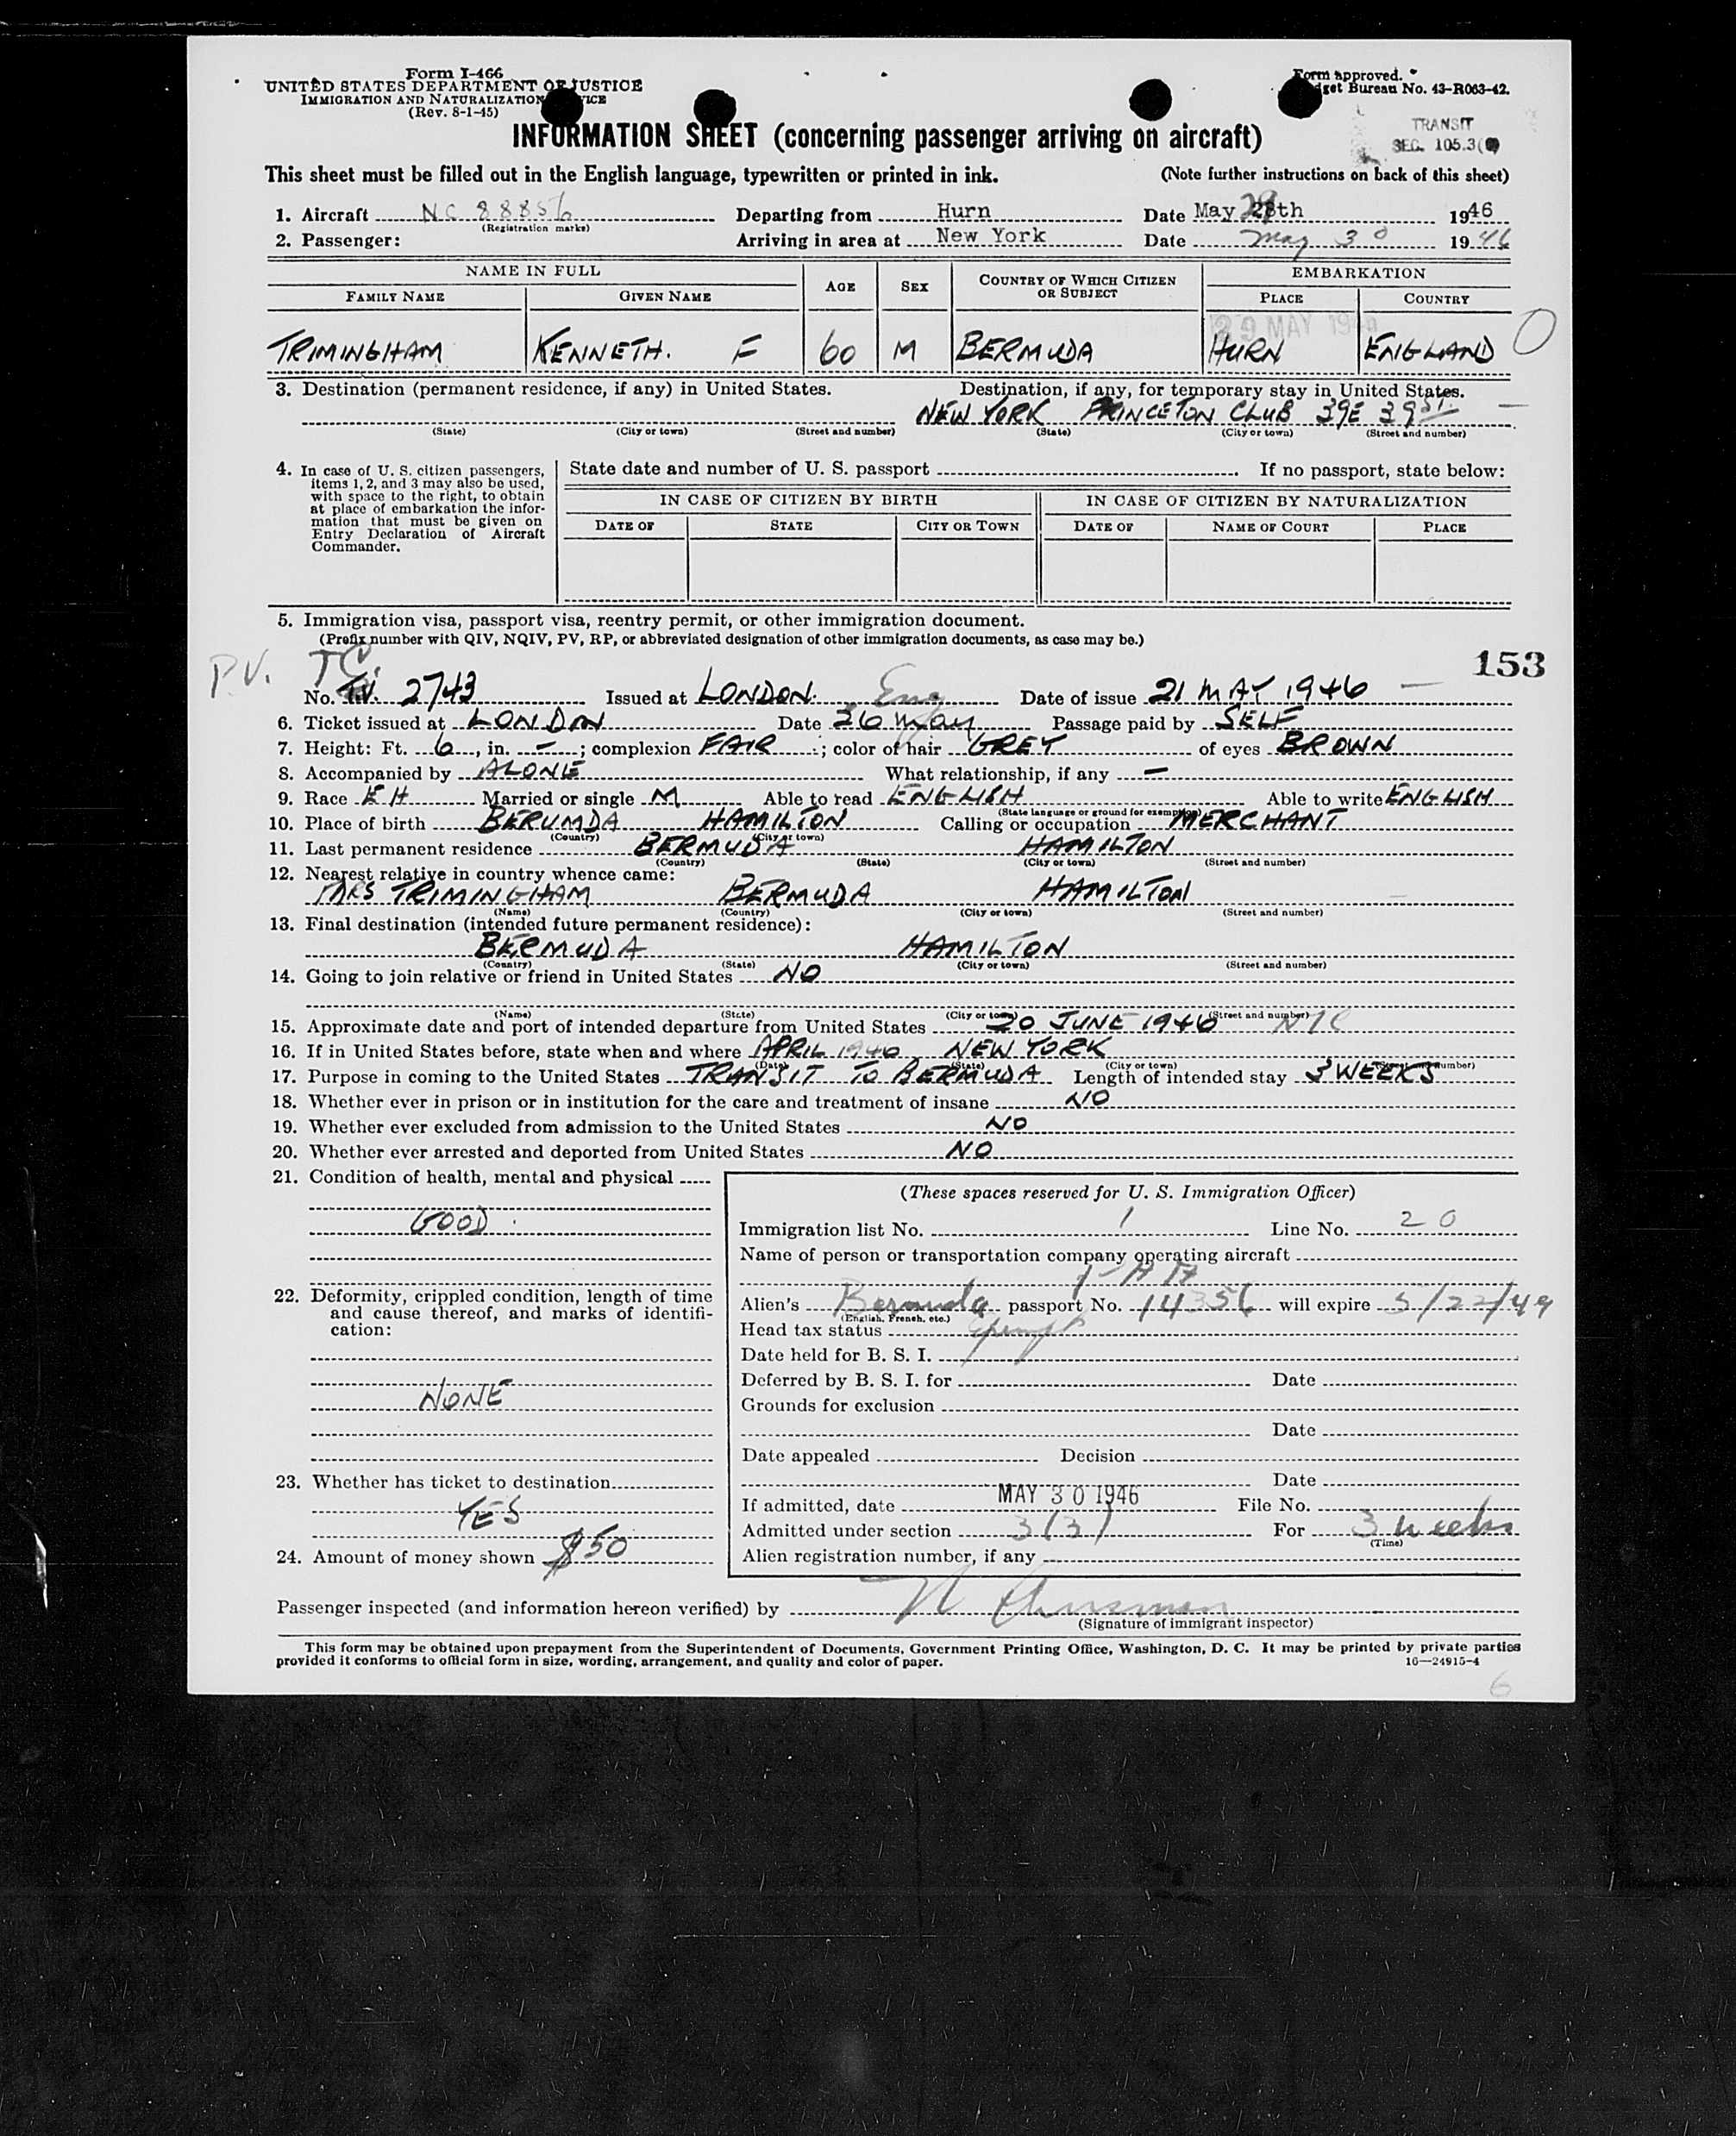 Form I-466
UNITED STATES DEPARTMENT OF JUSTICE
IMMIGRATION AND NATURALIZATION
(Rev. 8-1-45)
Form approved.
Budget Bureau No. 43-R063-42.
TRANSIT
SEC. 105.3(
INFORMATION SHEET (concerning passenger arriving on aircraft)
This sheet must be filled out in the English language, typewritten or printed in ink. (Note further instructions on back of this sheet)
1. Aircraft NC 88856 Departing from Hurn Date May 28th 1946
(Registration marks)
2. Passenger: Arriving in area at New York Date May 30 1946
NAME IN FULL AGE SEX COUNTRY OF WHICH CITIZEN OR SUBJECT EMBARKATION
FAMILY NAME GIVEN NAME PLACE COUNTRY
29 MAY 194
TRIMINGHAM KENNETH. F 60 M BERMUDA HURN ENGLAND
3. Destination (permanent residence, if any) in United States. Destination, if any, for temporary stay in United States.
NEW YORK PRINCETON CLUB 39E 39 ST.
(State) (City or town) (Street and number) (State) (City or town) (Street and number)
4. In case of U. S. citizen passengers, items 1, 2, and 3 may also be used, with space to the right, to obtain at place of embarkation the information that must be given on Entry Declaration of Aircraft Commander.
State date and number of U. S. passport If no passport, state below:
IN CASE OF CITIZEN BY BIRTH IN CASE OF CITIZEN BY NATURALIZATION
DATE OF STATE CITY OR TOWN DATE OF NAME OF COURT PLACE
5. Immigration visa, passport visa, reentry permit, or other immigration document.
(Prefix number with QIV, NQIV, PV, RP, or abbreviated designation of other immigration documents, as case may be.)
153
P.V. TC.
No. T.V. 2743 Issued at LONDON. Eng Date of issue 21 MAY 1946
6. Ticket issued at LONDON Date 26 May Passage paid by SELF
7. Height: Ft. 6, in. –; complexion FAIR; color of hair GREY of eyes BROWN
8. Accompanied by ALONE What relationship, if any –
9. Race EH Married or single M Able to read ENGLISH Able to write ENGLISH
(State language or ground for exemption)
10. Place of birth BERUMDA HAMILTON Calling or occupation MERCHANT
(Country) (City or town)
11. Last permanent residence BERMUDA HAMILTON
(Country) (State) (City or town) (Street and number)
12. Nearest relative in country whence came:
MRS TRIMINGHAM BERMUDA HAMILTON
(Name) (Country) (City or town) (Street and number)
13. Final destination (intended future permanent residence):
BERMUDA HAMILTON
(Country) (State) (City or town) (Street and number)
14. Going to join relative or friend in United States NO
(Name) (State) (City or town) (Street and number)
15. Approximate date and port of intended departure from United States 20 JUNE 1946 NYC
16. If in United States before, state when and where APRIL 1946 NEW YORK
(Date) (State) (City or town) (Street and number)
17. Purpose in coming to the United States TRANSIT TO BERMUDA Length of intended stay 3 WEEKS
18. Whether ever in prison or in institution for the care and treatment of insane NO
19. Whether ever excluded from admission to the United States NO
20. Whether ever arrested and deported from United States NO
21. Condition of health, mental and physical
GOOD.
22. Deformity, crippled condition, length of time and cause thereof, and marks of identification:
NONE
23. Whether has ticket to destination
YES
24. Amount of money shown $50
(These spaces reserved for U. S. Immigration Officer)
Immigration list No. 1 Line No. 20
Name of person or transportation company operating aircraft
Alien's Bermuda passport No. 14356 will expire 5/22/49
(English, French, etc.)
Head tax status Exempt
Date held for B. S. I.
Deferred by B. S. I. for Date
Grounds for exclusion
Date
Date appealed Decision
Date
If admitted, date MAY 30 1946 File No.
Admitted under section 3(3) For 3 weeks
(Time)
Alien registration number, if any
Passenger inspected (and information hereon verified) by
(Signature of immigrant inspector)
This form may be obtained upon prepayment from the Superintendent of Documents, Government Printing Office, Washington, D. C. It may be printed by private parties
provided it conforms to official form in size, wording, arrangement, and quality and color of paper. 16—24915-4
6